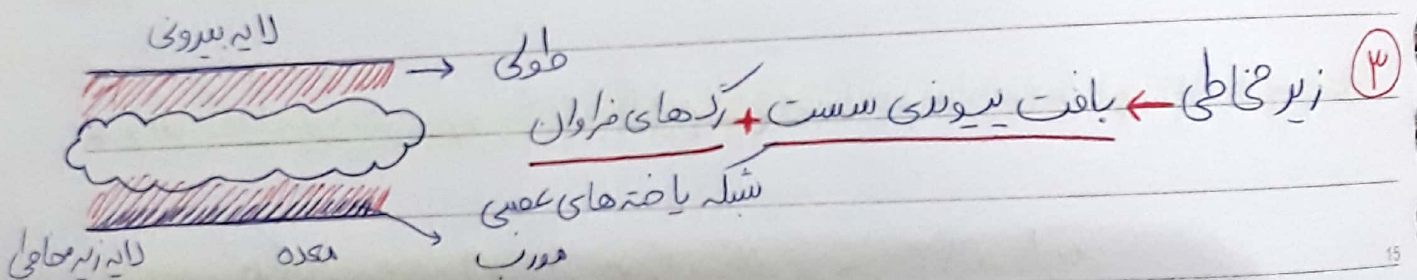 ۳ زیر مخاطی ← بافت پیوندی سست + رگ‌های فراوان
شبکه یاخته‌های عصبی
لایه بیرونی
طولی
مورب
معده
لایه زیر مخاطی
15